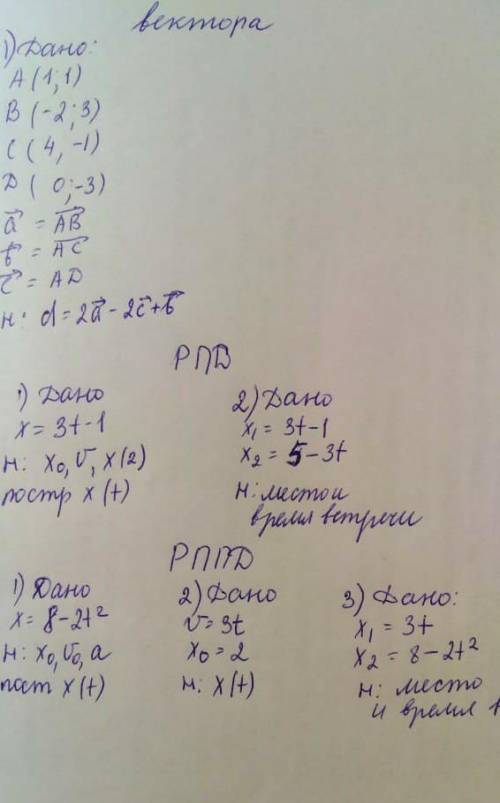 вектора
1) Дано:
A (1; 1)
B (-2; 3)
C (4, -1)
D ( 0; -3)
a⃗ = AB⃗
b⃗ = AC⃗
c⃗ = AD
н: d = 2a⃗ - 2c⃗ + b⃗
РПД
1) Дано
x = 3t - 1
н: x₀, v, x(2)
постр x(t)
2) Дано
x₁ = 3t - 1
x₂ = 5 - 3t
н: место и
время встречи
РППД
1) Дано
x = 8 - 2t²
н: x₀, v₀, a
пост x(t)
2) Дано
v = 3t
x₀ = 2
н: x(t)
3) Дано:
x₁ = 3t
x₂ = 8 - 2t²
н: место
и время